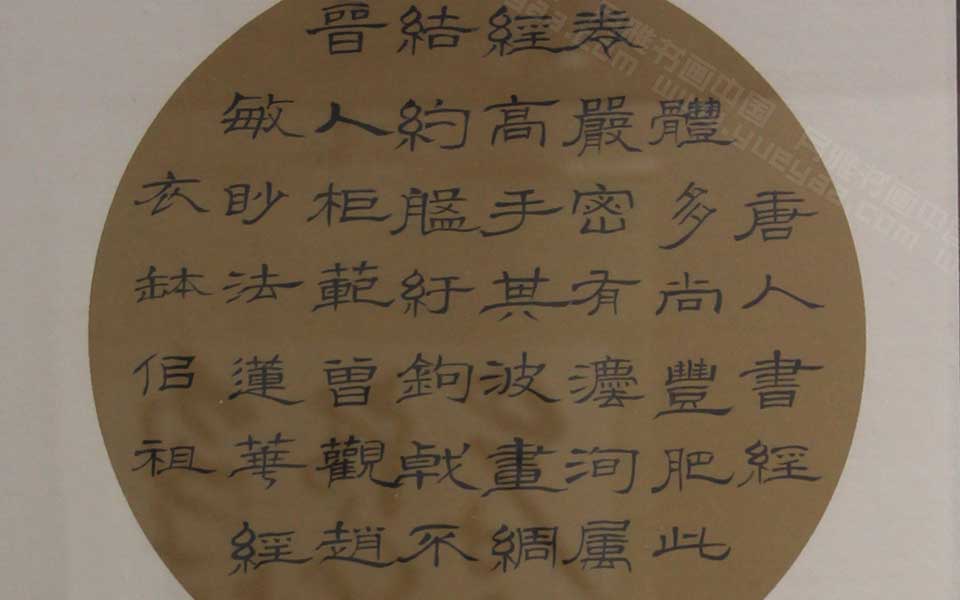 唐人書經
體多尚豐肥此
卷嚴密有灋洵屬
經高手其波畫綢
結約紆鉤戟不
晉人柜範曾觀趙
敏眇法蓮華經
衣缽佀祖
书画中国